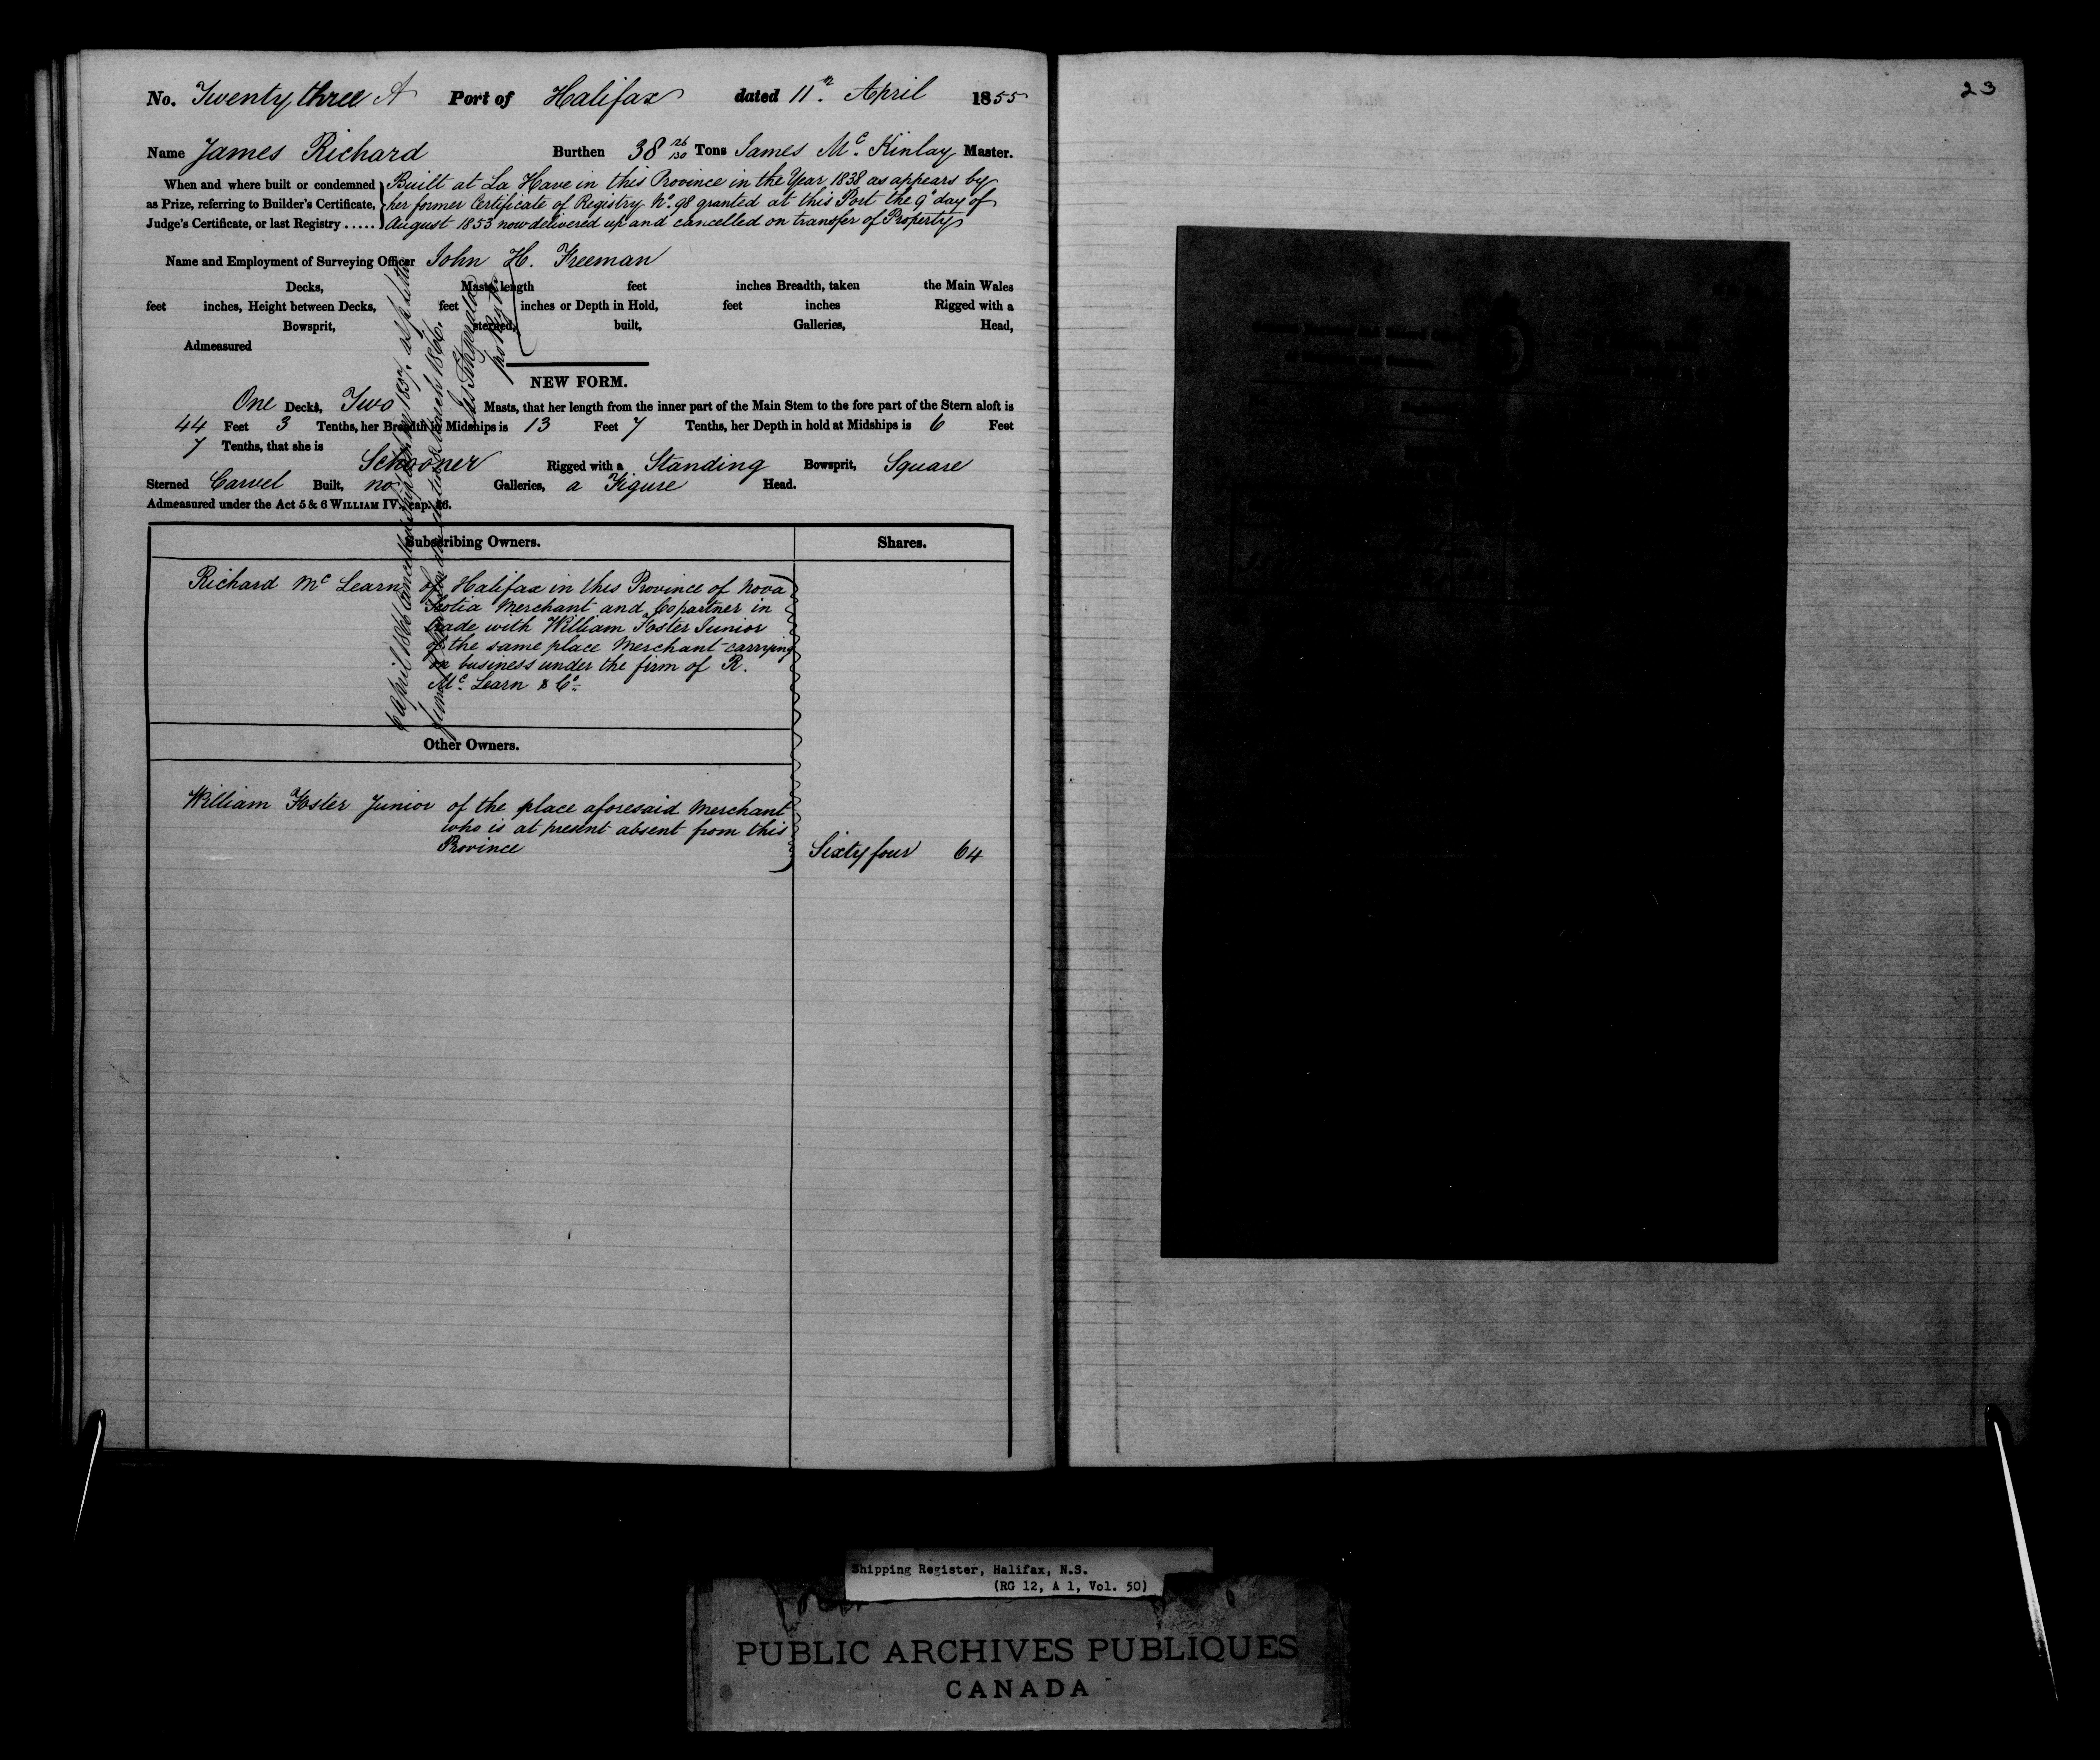 No. Twenty three A Port of Halifax dated 11th April 1855
Name James Richard Burthen 38 26/130 Tons James Mc Kinlay Master.
When and where built or condemned as Prize, referring to Builder's Certificate, Judge's Certificate, or last Registry .....
Built at La Have in this Province in the Year 1838 as appears by
her former Certificate of Registry No. 98 granted at this Port the 9th day of
August 1853 now delivered up and cancelled on transfer of Property
Name and Employment of Surveying Officer John H. Freeman
Decks, Masts, length feet inches Breadth, taken the Main Wales
feet inches, Height between Decks, feet inches or Depth in Hold, feet inches Rigged with a
Bowsprit, sterned, built, Galleries, Head,
Admeasured
NEW FORM.
One Decks, Two Masts, that her length from the inner part of the Main Stem to the fore part of the Stern aloft is
44 Feet 3 Tenths, her Breadth in Midships is 13 Feet 7 Tenths, her Depth in hold at Midships is 6 Feet
7 Tenths, that she is
Schooner Rigged with a Standing Bowsprit, Square
Sterned Carvel Built, no Galleries, a Figure Head.
Admeasured under the Act 5 & 6 WILLIAM IV. cap. 56.
Subscribing Owners. Shares.
Richard Mc Learn of Halifax in this Province of Nova
Scotia Merchant and Copartner in
trade with William Foster Junior
of the same place Merchant carrying
on business under the firm of R.
Mc. Learn & Co.
Other Owners.
William Foster Junior of the place aforesaid Merchant
who is at present absent from this
Province
Sixty four 64
6 April 1866 Cancelled
March 1866.
23
Shipping Register, Halifax, N.S.
(RG 12, A 1, Vol. 50)
PUBLIC ARCHIVES PUBLIQUES
CANADA